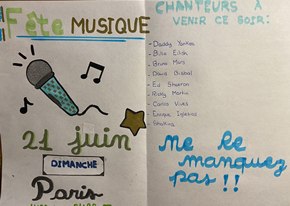 Fête MUSIQUE
21 juin
DIMANCHE
Paris
CHANTEURS À
VENIR CE SOIR:
- Daddy Yankee
- Billie Eilish
- Bruno Mars
- David Bisbal
- Ed Sheeran
- Ricky Martin
- Carlos Vives
- Enrique Iglesias
Me le
manquez
pas!!